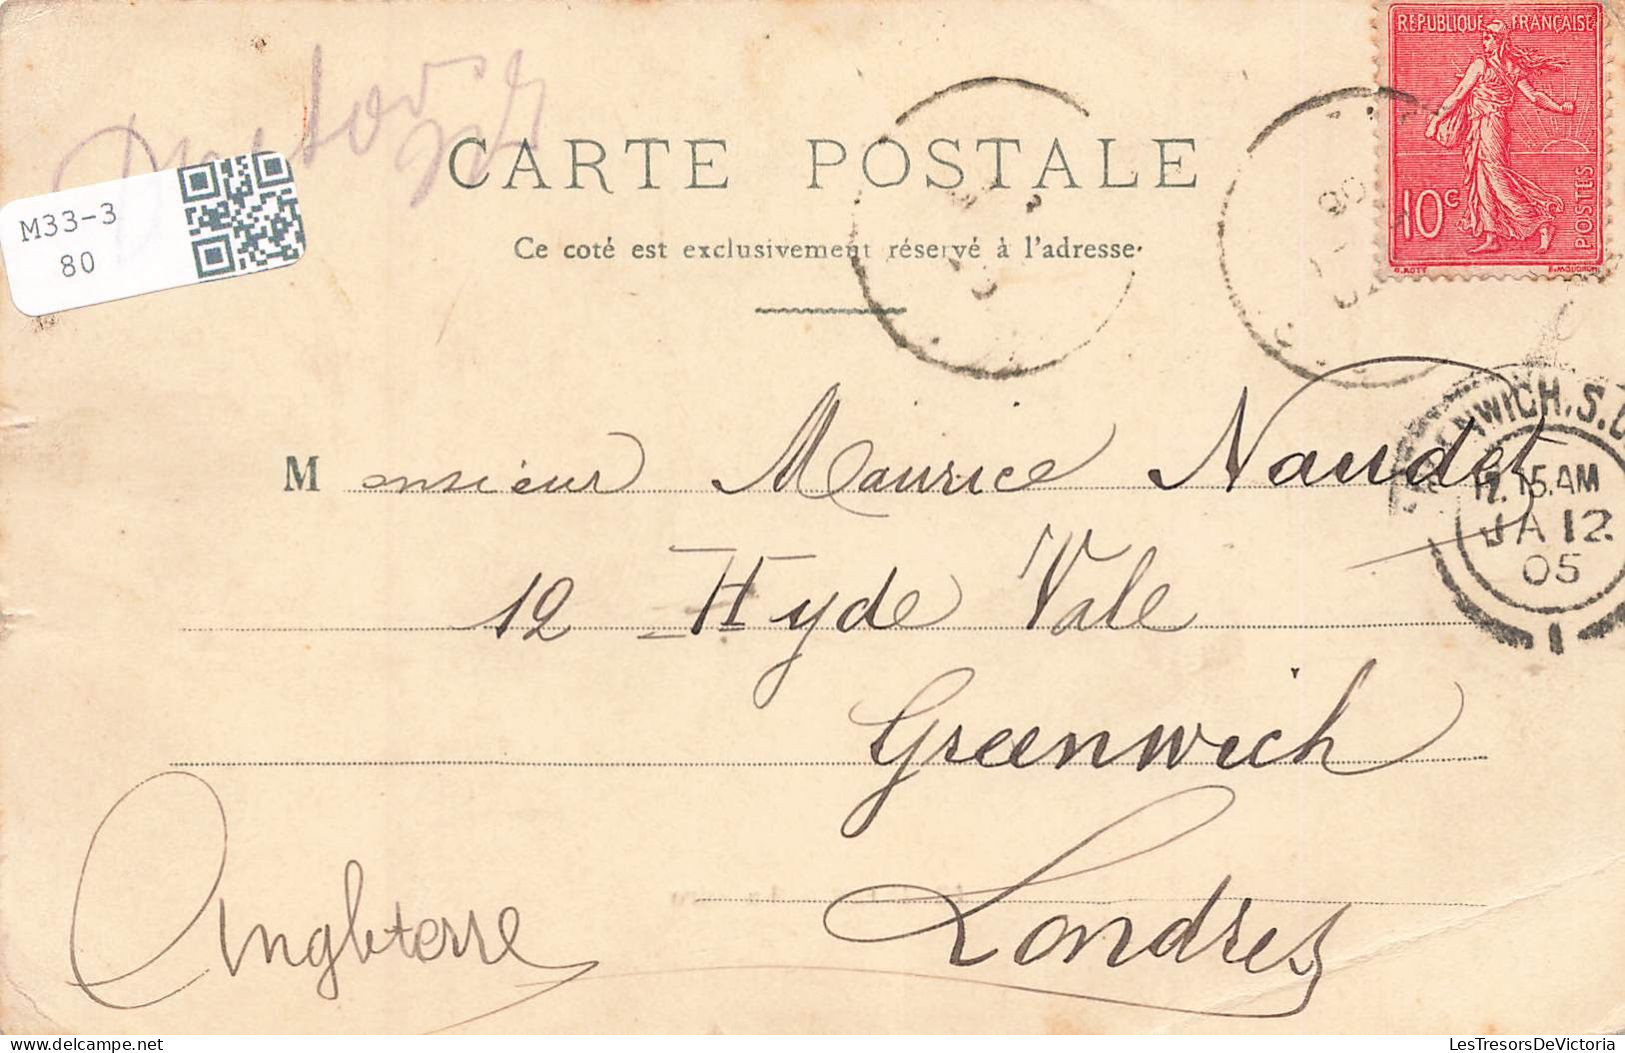 REPUBLIQUE FRANÇAISE
10c
POSTES
O. ROTY
CARTE POSTALE
M33-3
80
Ce coté est exclusivement réservé à l'adresse.
Monsieur Maurice Naudet
12 Hyde Vale
Greenwich
Londres
Angleterre
GREENWICH. S.
11.15.AM
JA 12
05
1
LesTresorsDeVictoria